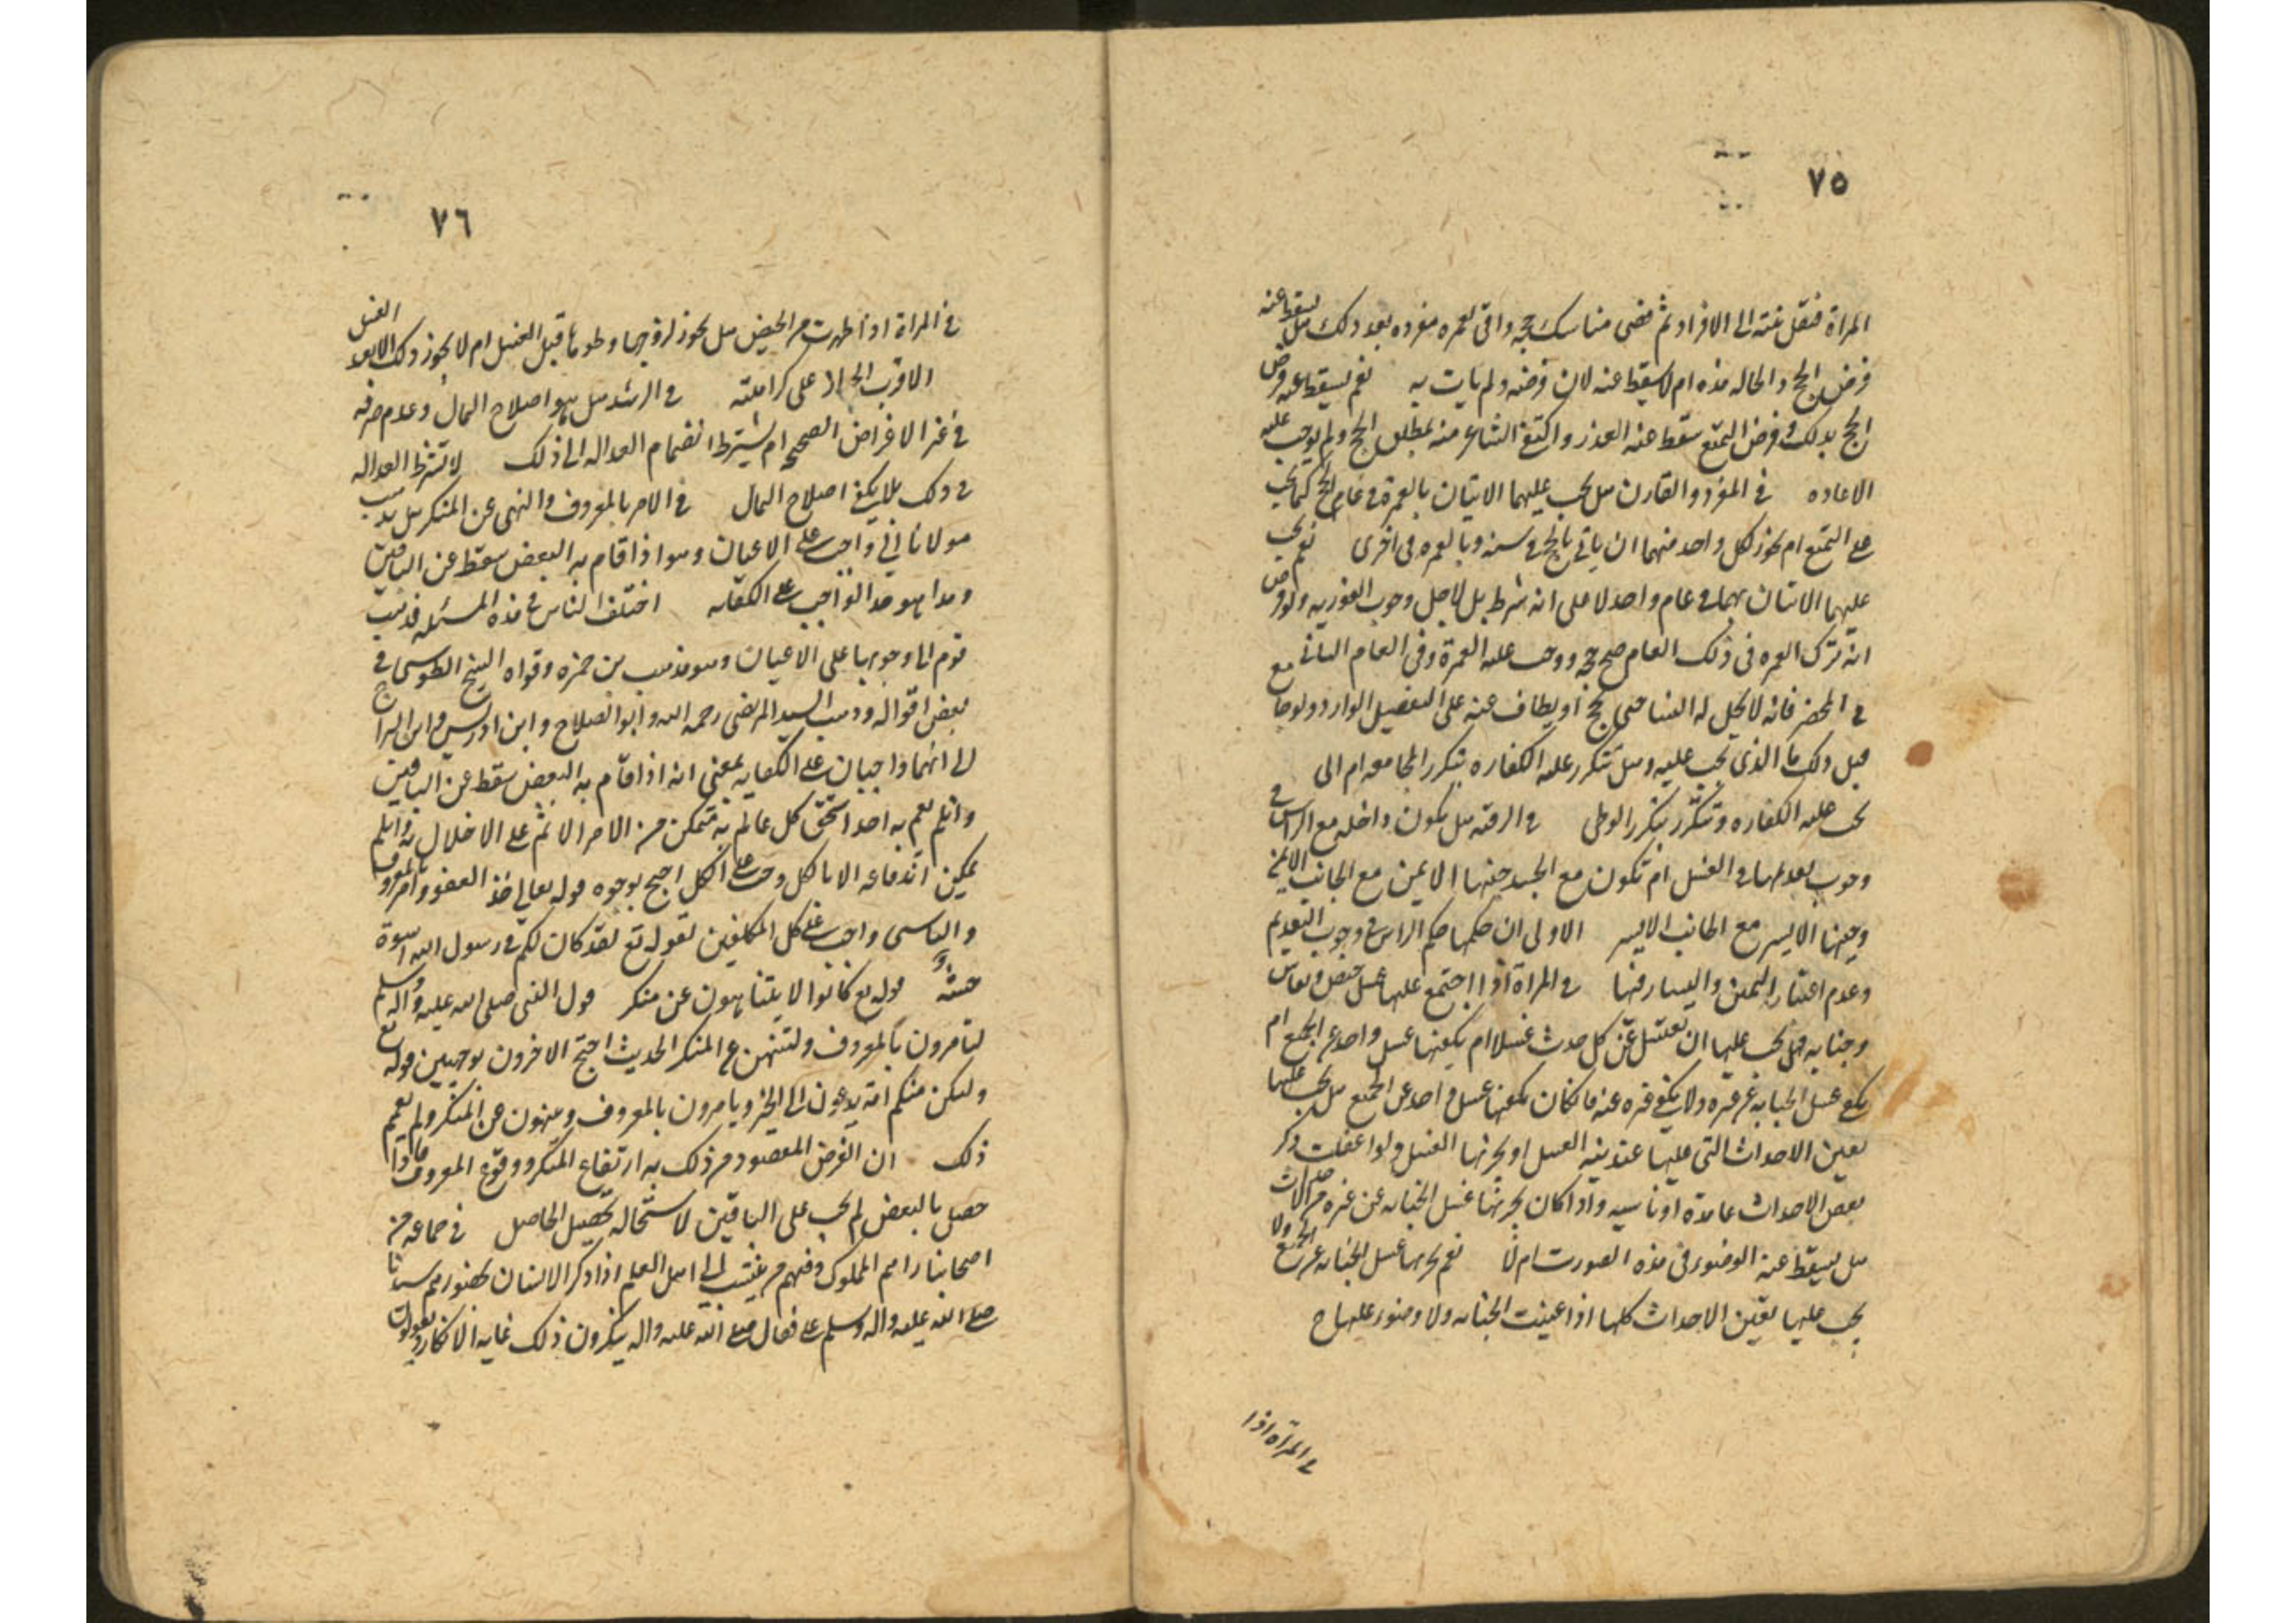 ٧٥
المراة فنقل نيته الى الافراد ثم قضى مناسك حجه واتى بعمره مفرده بعد ذلك هل يسقط عنه
فرض الحج والحاله هذه ام لا يسقط عنه لان فرضه ولم يات به نعم يسقط عنه فرض
الحج بذلك وفرض التمتع سقط عنه العذر واكتفى الشارع منه بمطلق الحج ولم يوجب عليه
الاعاده في المفرد والقارن هل يجب عليهما الاتيان بالعمرة في عام الحج كما يجب
على التمتع ام يجوز لكل واحد منهما ان ياتي بالحج في سنه وبالعمره في اخرى نعم يجب
عليهما الاتيان بهما في عام واحد لا على انه شرط بل لاجل وجوب الفوريه ولو فرض
انه ترك العمره في ذلك العام صح حجه ووجب عليه العمرة وفي العام الثاني مع
في المحصر فانه لا يحل له النسا حتى يحج او يطاف عنه على التفصيل الوارد ولو جامع
قبل ذلك ما الذي يجب عليه وهل تتكرر عليه الكفاره بتكرر المجامعه ام الى
يجب عليه الكفاره وتتكرر بتكرر الوطى في الرقبه هل يكون داخله مع الراس في
وجوب تقديمها في الغسل ام تكون مع الجسد جنبها الايمن مع الجانب الايمن
وجنبها الايسر مع الجانب الايسر الاولى ان حكمها حكم الراس في وجوب التقديم
وعدم اعتبار اليمين واليسار فيها في المراة اذا اجتمع عليها غسل حيض ونفاس
وجنابه فهل يجب عليها ان تغتسل عن كل حدث غسلا ام يكفيها غسل واحد عن الجميع ام
يكفي غسل الجنابه عن غيره ولا يكفي غيره عنه فان كان يكفيها غسل واحد عن الجميع هل يجب عليها
تعيين الاحداث التي عليها عند نية الغسل او يجزئها الغسل ولو اغفلت ذكر
بعض الاحداث عامدة او ناسيه واذا كان يجزئها غسل الجنابه عن غيره من الاحداث
هل يسقط عنه الوضوء في هذه الصورت ام لا نعم يجزيها غسل الجنابه عن الجميع ولا
يجب عليها تعيين الاحداث كلها اذا عينت الجنابه ولا وضوء عليها ح
في المراة اذا
٧٦
في المراة اذا طهرت من الحيض هل يجوز لزوجها وطوها قبل الغسل ام لا يجوز ذلك الا بعد الغسل
الاقرب الجواز على كراهته في الرشد هل هو اصلاح المال وعدم صرفه
في غير الاغراض الصحيحه ام يشترط انضمام العداله الى ذلك لا تشترط العداله
في ذلك بل يكفي اصلاح المال في الامر بالمعروف والنهى عن المنكر هل مذهب
مولانا انه واجب على الاعيان وهو اذا قام به البعض سقط عن الباقين
وهذا هو حد الواجب على الكفايه اختلف الناس في هذه المسئله فذهب
قوم الى وجوبها على الاعيان وهو مذهب بن حمزه وقواه الشيخ الطوسى في
بعض اقواله وذهب السيد المرتضى رحمه الله وابو الصلاح وابن ادريس وابن البراج
الى انهما واجبان على الكفايه بمعنى انه اذا قام به البعض سقط عن الباقين
وان لم يقم به احد استحق كل عالم به متمكن من الامر الاثم على الاخلال به وان لم
يمكن اندفاعه الا بالكل وجب على الكل احتج بوجوه قوله تعالى خذ العفو وامر بالمعروف
والتاسى واجب على كل المكلفين لقوله تع لقد كان لكم في رسول الله اسوة
حسنة قوله تع كانوا لا يتناهون عن منكر قول النبى صلى الله عليه واله وسلم
لتامرون بالمعروف ولتنهن عن المنكر الحديث احتج الاخرون بوجهين قوله تع
ولتكن منكم امة يدعون الى الخير ويامرون بالمعروف وينهون عن المنكر ولم يعمم
ذلك ان الغرض المقصود من ذلك به ارتفاع المنكر ووقوع المعروف فاذا
حصل بالبعض لم يجب على الباقين لاستحاله تحصيل الحاصل في جماعه من
اصحابنا راهم المملوك وفيهم من ينتسب الى اهل العلم اذا ذكر الانسان بحضورهم سيدنا
صلى الله عليه واله وسلم على فقال صلى الله عليه واله ينكرون ذلك غايه الانكار ويقولون